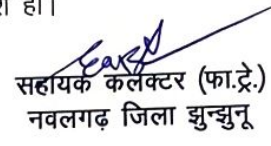 हो।
सहायक कलेक्टर (फा.ट्रे.)
नवलगढ़ जिला झुन्झुनू